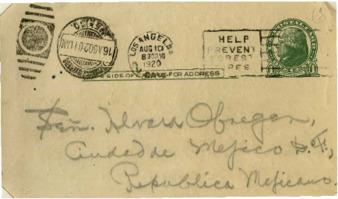 LOS ANGELES
AUG 10
1920
HELP
PREVENT
FOREST
FIRES
SIDE OF CARD FOR ADDRESS
Señ. Alvaro Obregon,
Ciudad de Mejico D.F,
Republica Mejicano.